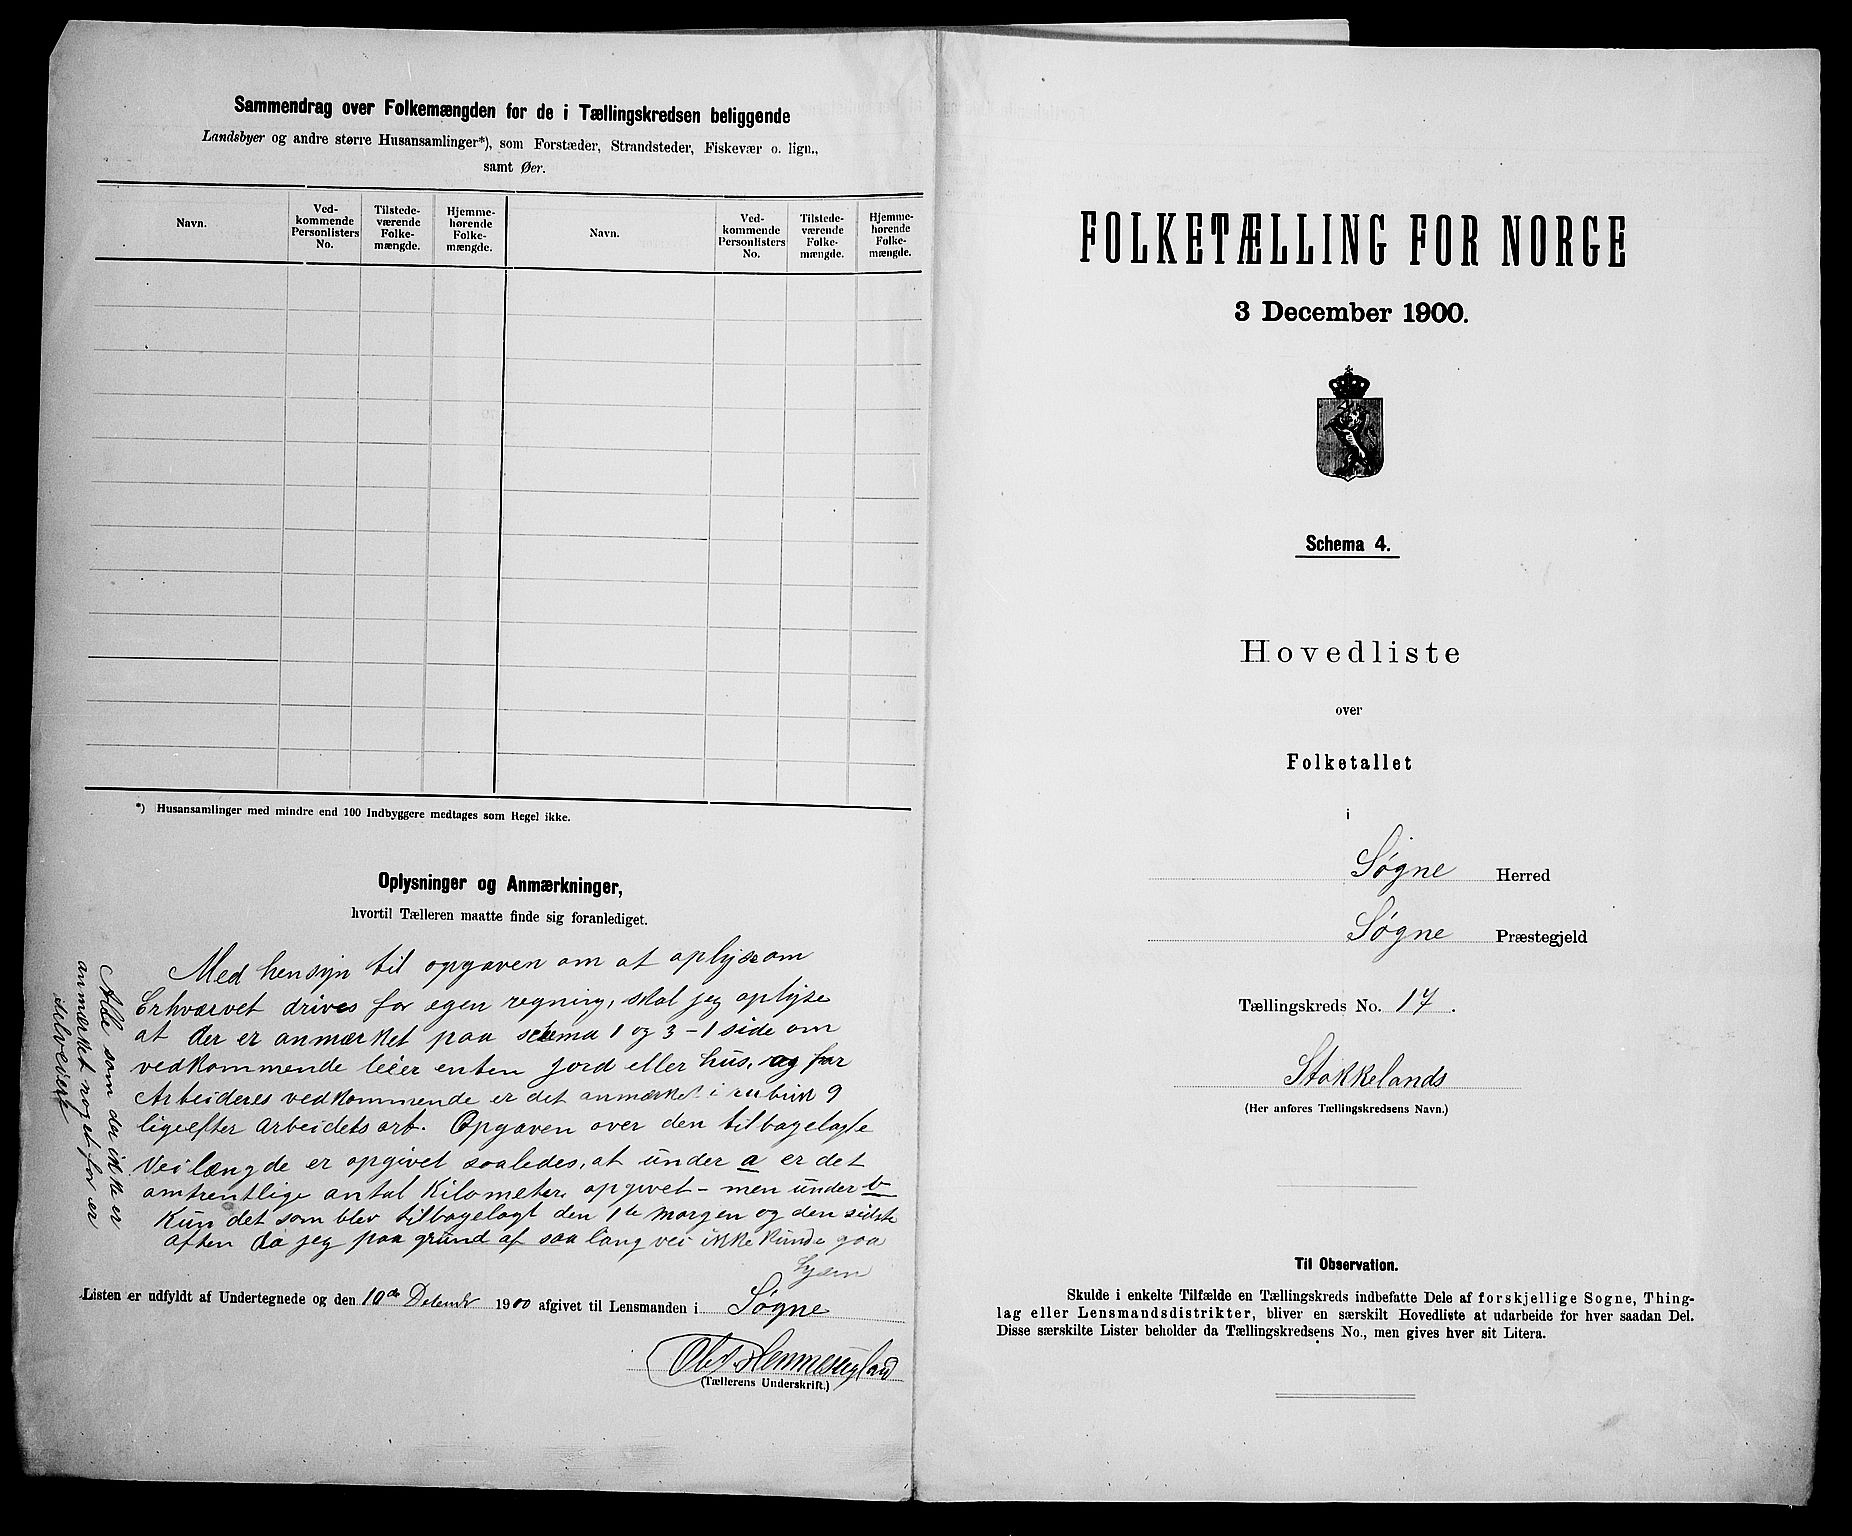 Sammendrag over Folkemængden for de i Tællingskredsen beliggende
Landsbyer og andre større Husansamlinger*), som Forstæder, Strandsteder, Fiskevær o. lign.,
samt Øer.
Navn.
Ved-
kommende
Personlisters
No.
Tilstede-
værende
Folke-
mængde.
Hjemme-
hørende
Folke-
mængde.
Navn.
Ved-
kommende
Personlisters
No.
Tilstede-
værende
Folke-
mængde.
Hjemme-
hørende
Folke-
mængde.
*) Husansamlinger med mindre end 100 Indbyggere medtages som Regel ikke.
Oplysninger og Anmærkninger,
hvortil Tælleren maatte finde sig foranlediget.
Med hensyn til opgaven om at oplyse om
Erhvervet drives for egen regning, skal jeg oplyse
at der er anmærket paa schema 1 og 3 - 1 side om
vedkommende leier enten jord eller hus, og for
Arbeideres vedkommende er det anmærket i rubrik 9
ligeefter arbeidets art. Opgaven over den tilbagelagte
Veilængde er opgivet saaledes, at under a er det
omtrentlige antal Kilometer opgivet - men under b
Kun det som blev tilbagelagt den 1te morgen og den sidste
aften da jeg paa grund af saa lang vei ikke kunde gaa
hjem
Alle som der ikke er
anmærket noget for er
selveiere
Listen er udfyldt af Undertegnede og den 10de Decembr 1900 afgivet til Lensmanden i Søgne
(Tællerens Underskrift.)
FOLKETÆLLING FOR NORGE
3 December 1900.
Schema 4.
Hovedliste
over
Folketallet
i
Søgne Herred
Søgne Præstegjeld
Tællingskreds No. 17.
Stokkelands
(Her anføres Tællingskredsens Navn.)
Til Observation.
Skulde i enkelte Tilfælde en Tællingskreds indbefatte Dele af forskjellige Sogne, Thing-
lag eller Lensmandsdistrikter, bliver en særskilt Hovedliste at udarbeide for hver saadan Del.
Disse særskilte Lister beholder da Tællingskredsens No., men gives hver sit Litera.